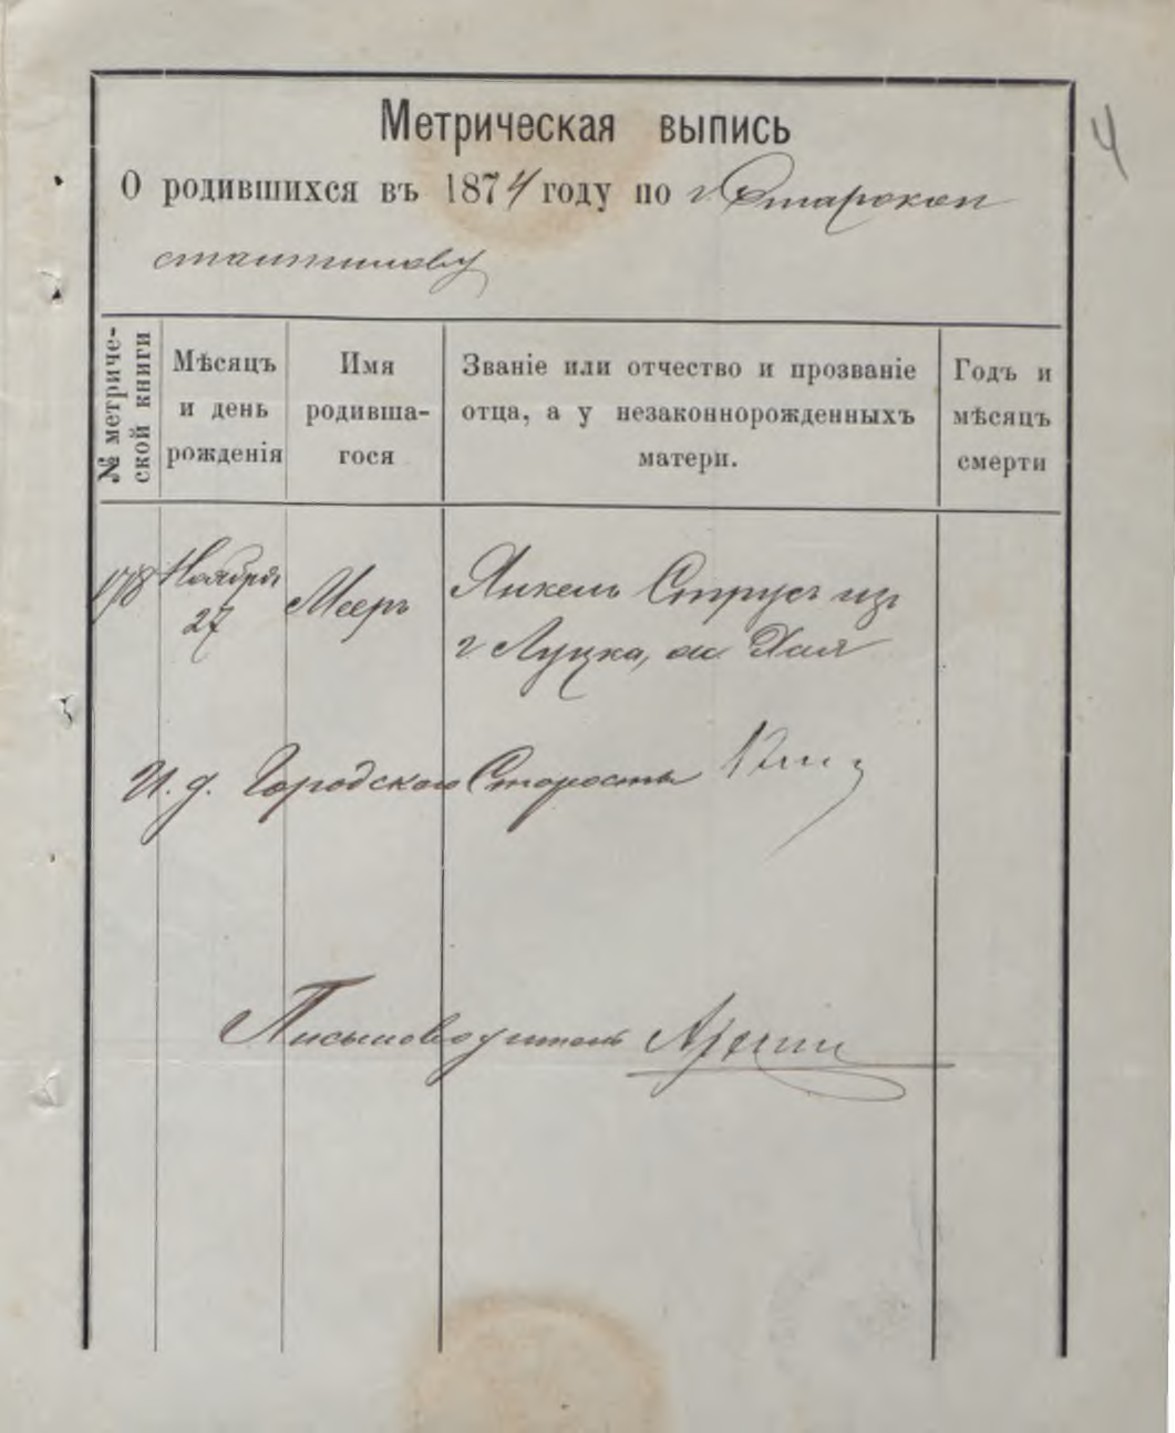 4
Метрическая выпись
О родившихся въ 1874 году по г. Старокон
стантинову
№ метриче-
ской книги
Мѣсяцъ
и день
рожденія
Имя
родивша-
гося
Званіе или отчество и прозваніе
отца, а у незаконнорожденныхъ
матери.
Годъ и
мѣсяцъ
смерти
178
Ноября
27
Мееръ
Янкель Струсъ из
г. Луцка, Хая
И. д. Городского Старосты
Письмоводитель